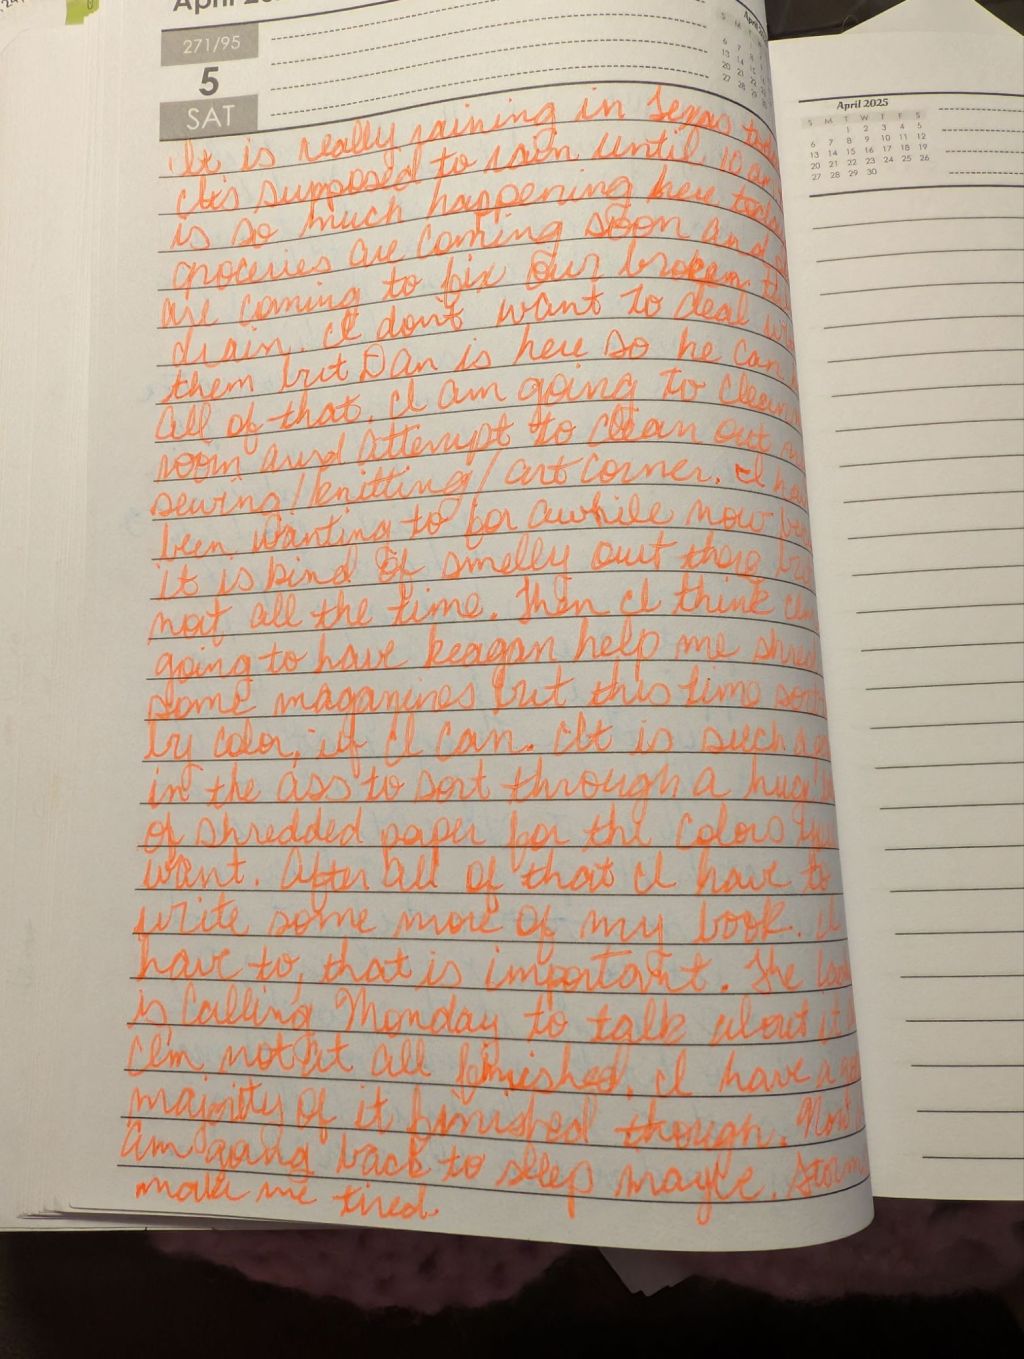 April
271/95
5
SAT
It is really raining in Texas
Its supposed to rain until 10
is so much happening here
groceries are coming soon and
are coming to fix our broken
drain. I dont want to deal
them but Dan is here so he can
all of that. I am going to clean
room and attempt to clean out
sewing/knitting/art corner. I
been wanting to for awhile now
it is kind of smelly out there
not all the time. Then I think
going to have keagan help me
some magazines but this time
by color, if I can. It is such
in the ass to sort through a
of shredded paper for the colors
want. After all of that I have to
write some more of my book. I
have to, that is important. The
is calling Monday to talk about it
Im not at all finished. I have a
majority of it finished though.
am going back to sleep maybe.
make me tired.
April 2025
S M T W T F S
1 2 3 4 5
6 7 8 9 10 11 12
13 14 15 16 17 18 19
20 21 22 23 24 25 26
27 28 29 30